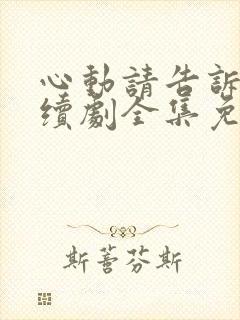 心動請告訴
續劇全集免
斯蕾芬斯